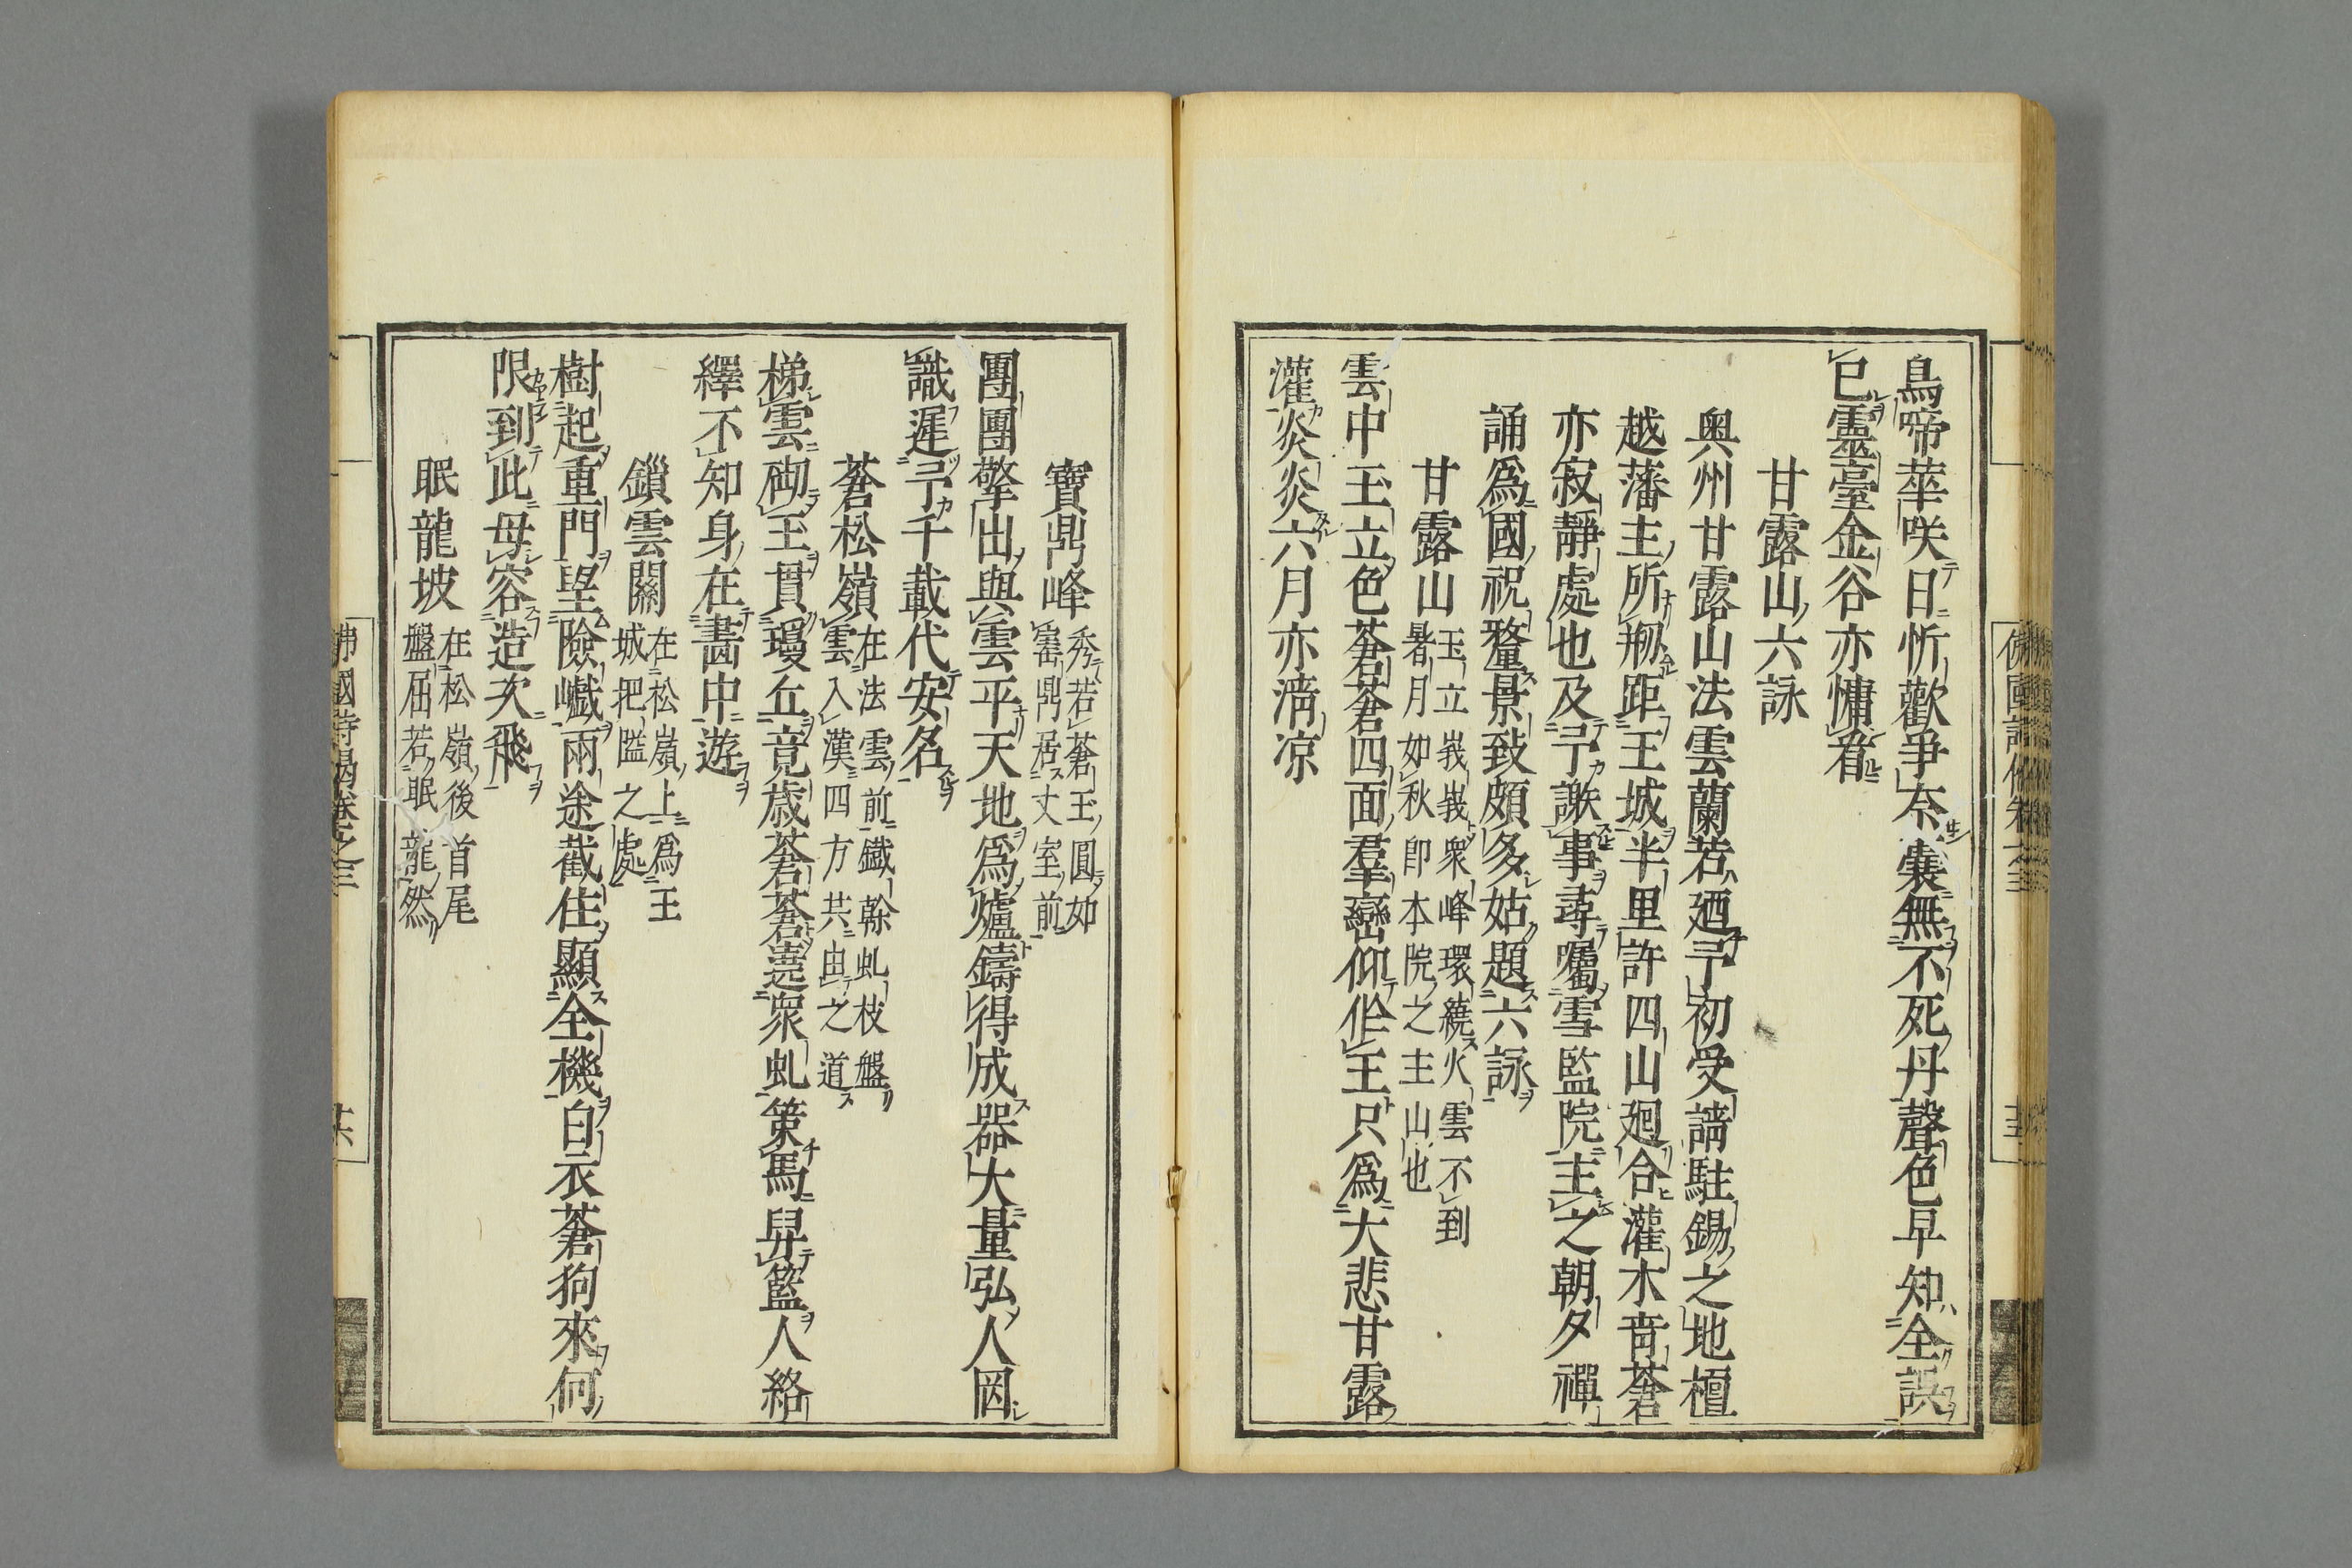 鳥啼華咲日忻歡爭奈囊無不死丹聲色早知全誤
已靈臺金谷亦慵看
甘露山六詠
奥州甘露山法雲蘭若廼予初受請駐錫之地檀
越藩主所剏距王城半里許四山廻合灌木奇蒼
亦寂靜處也及予謝事尋囑雪監院主之朝夕禪
誦爲國祝釐景致頗多姑題六詠
甘露山
玉立峩峩衆峰環繞火雲不到
暑月如秋卽本院之主山也
雲中玉立色蒼蒼四面羣巒仰作王只爲大悲甘露
灌炎炎六月亦淸凉
寶鼎峰
秀若蒼玉圓如
窰鼎居丈室前
團團擎出與雲平天地爲爐鑄得成器大量弘人罔
識遲予千載代安名
蒼松嶺
在法雲前鐵幹虬枝盤
雲入漢四方共由之道
梯雲砌玉貫瓊丘竟歳蒼蒼遶衆虬策馬舁籃人絡
繹不知身在畵中遊
鎖雲關
在松嶺上爲王
城把隘之處
樹起重門朢險巇兩途截住顯全機白衣蒼狗來何
限到此毋容造次飛
眠龍坡
在松嶺後首尾
盤屈若眠龍然
佛國詩偈卷之三